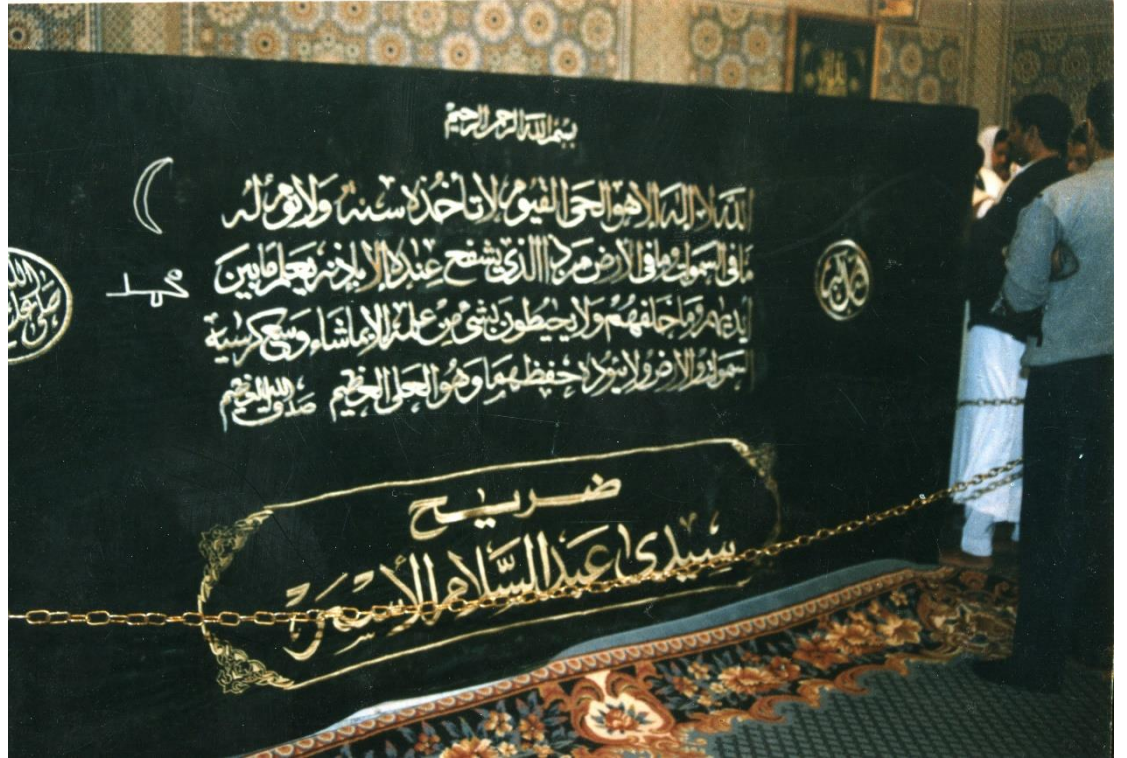 بسم الله الرحمن الرحيم
الله لا إله إلا هو الحي القيوم لا تأخذه سنة ولا نوم له
ما في السموات وما في الأرض من ذا الذي يشفع عنده إلا بإذنه يعلم ما بين
أيديهم وما خلفهم ولا يحيطون بشئ من علمه إلا بما شاء وسع كرسيه
السموات والأرض ولا يئوده حفظهما وهو العلي العظيم صدق الله العظيم
الله
محمد
ضريح
سيدى عبد السَّلام الأسْمَر